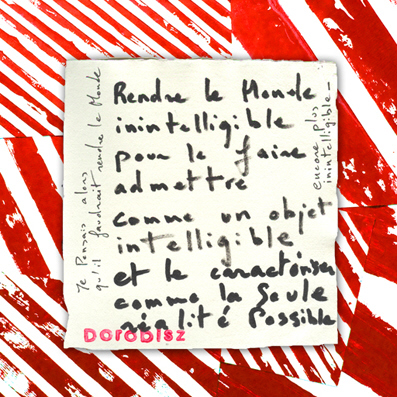 Rendre le Monde
inintelligible
pour le faire
admettre
comme un objet
intelligible
et le caractériser
comme la Seule
réalité Possible
Je Pensais alors
qu'il faudrait rendre le Monde
encore Plus
inintelligible_
DOROBISZ